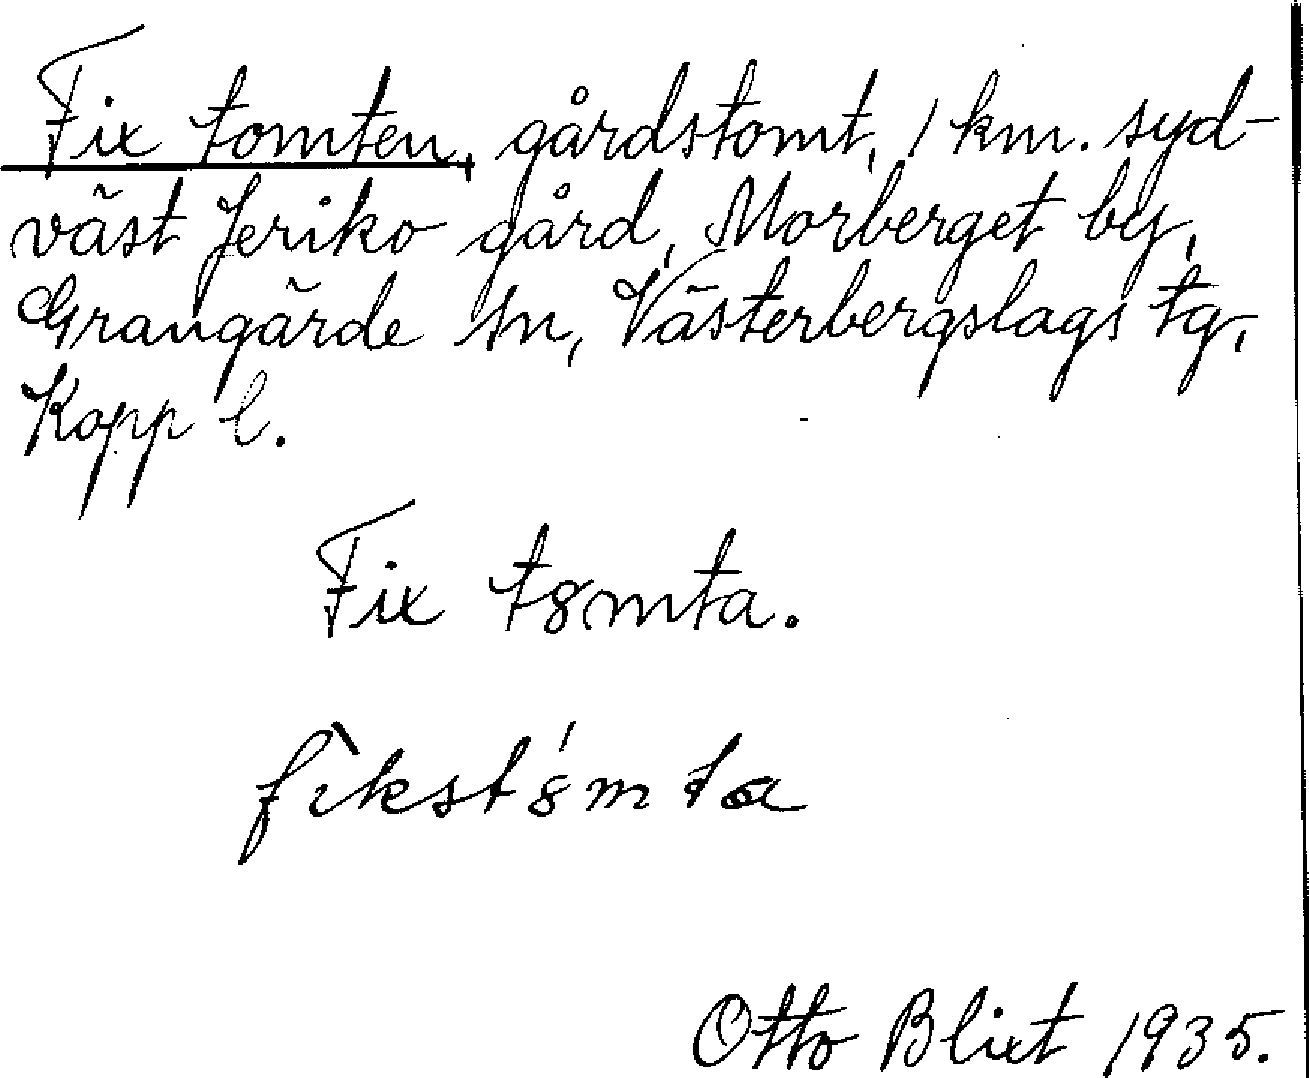 Fix tomten, gårdstomt, 1 km. syd-
väst Jeriko gård, Morberget by,
Grangärde sn, Västerbergslags tg,
Kopp l.
Fix t8mta.
fı̀kst8́mta
Otto Blixt 1935.